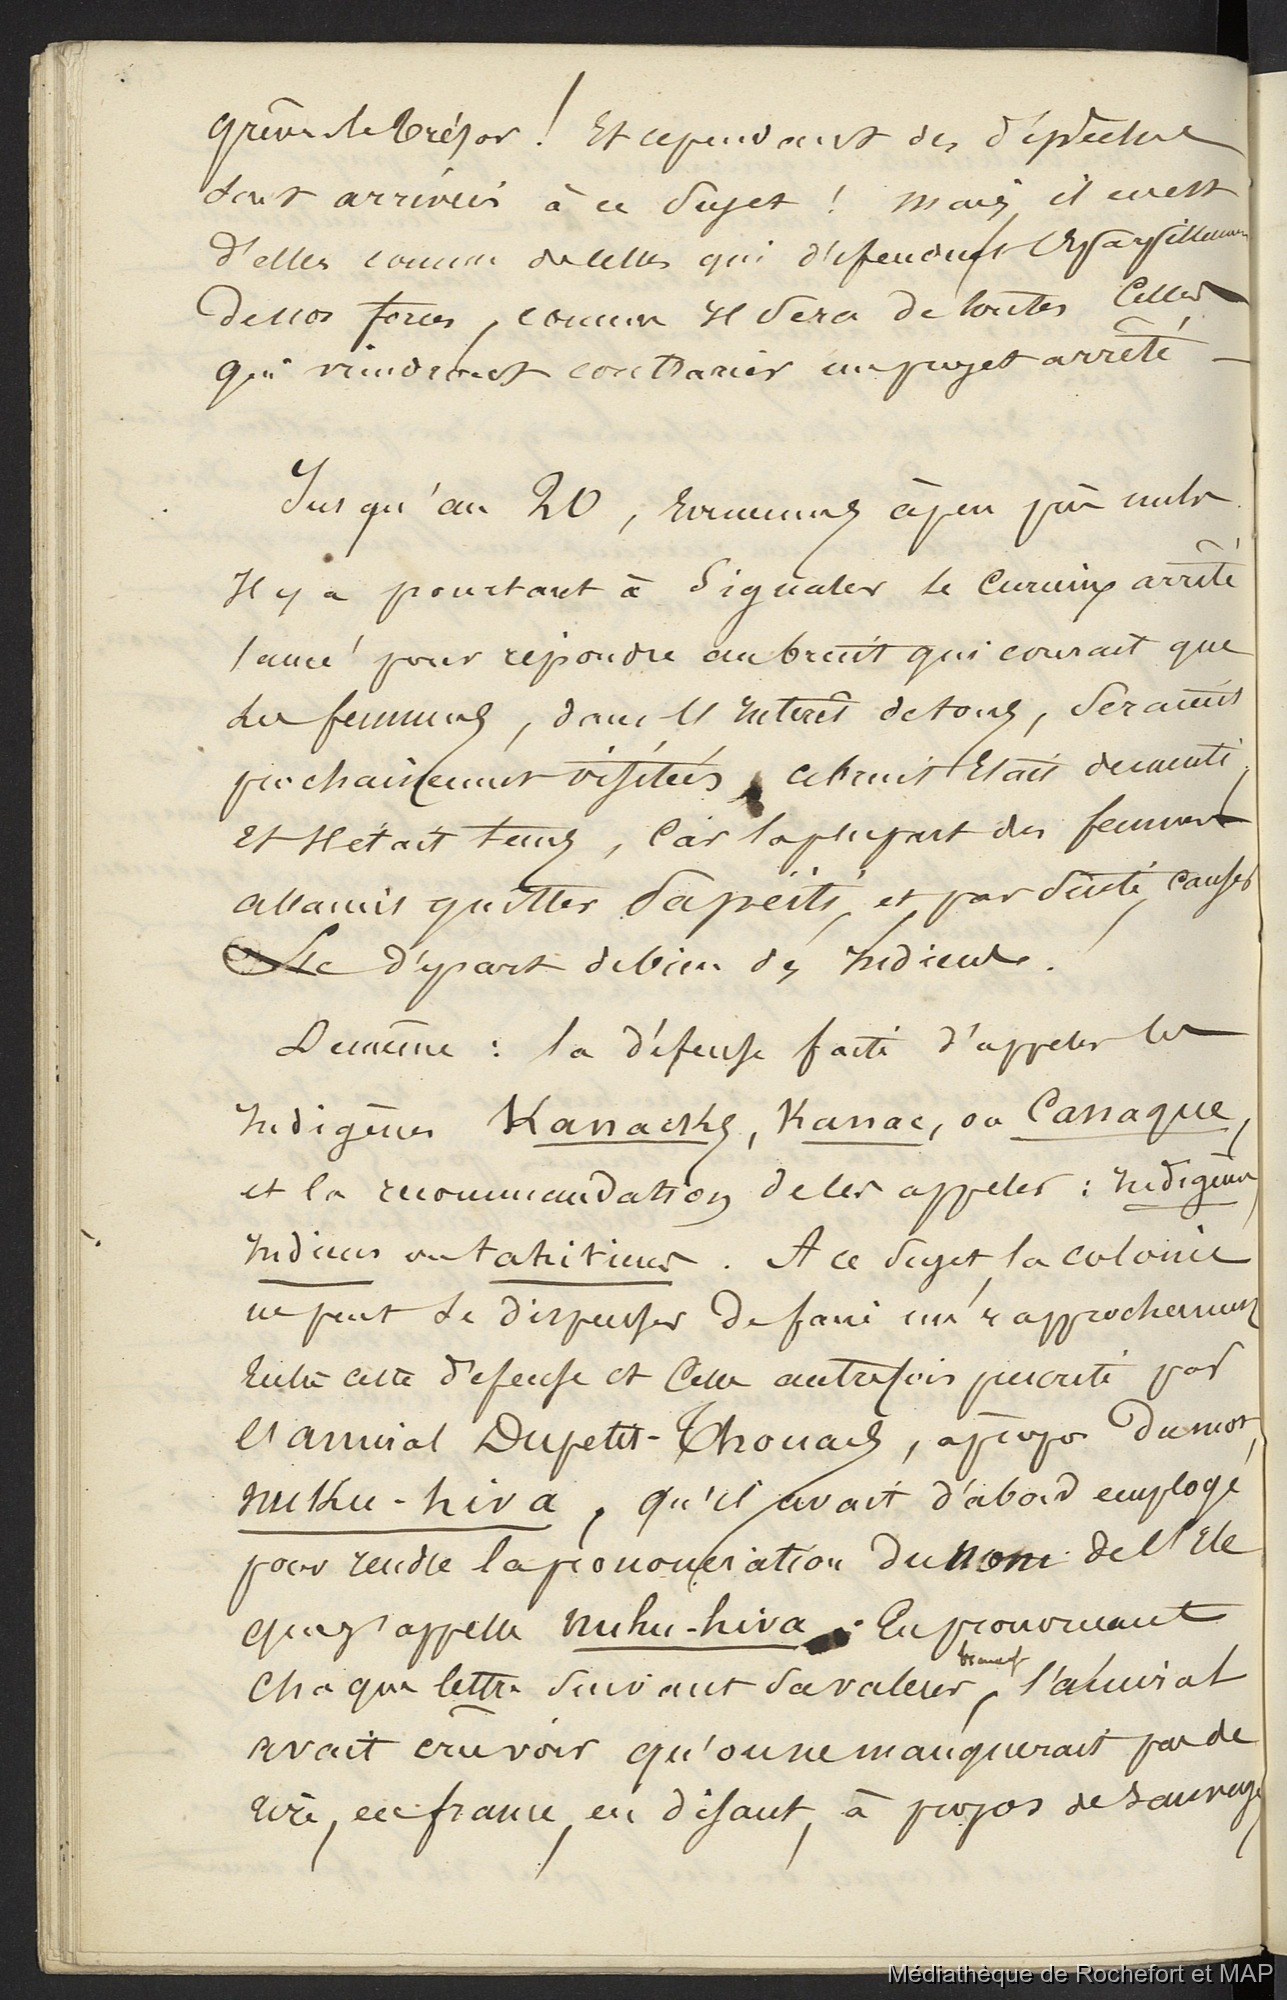 grève le trésor ! Et cependant des dépêches
sont arrivées à ce sujet ! mais il en est
d'elles comme de celles qui défendent l'éparpillement
de nos forces, comme il sera de toutes celles
qui viendront contrarier un projet arrêté —
Jusqu'au 20, événemens à peu près nuls
Il y a pourtant à signaler le curieux arrêté
lancé pour répondre au bruit qui courait que
les femmes, dans l'intérêt de tous, seraient
prochainement visitées, ce bruit était démenti,
et il était tems, car la plupart des femmes
allaient quitter Papéiti, et par suite, causer
le départ de bien des Indiens.
De même : la défense faite d'appeler les
Indigènes Kanacks, Kanac, ou Canaque,
et la recommandation de les appeler : Indigènes,
Indiens ou tahitiens. A ce sujet, la colonie
ne peut se dispenser de faire un rapprochement
entre cette défense et celle autrefois prescrite par
l'amiral Dupetit-Thouars, à propos du mot,
nuku-hiva, qu'il avait d'abord employé
pour rendre la prononciation du nom de l'Ile
qu'on appelle nuhu-hiva. En prononçant
chaque lettre suivant sa valeur, l'amiral
avait cru voir qu'on ne manquerait pas de
rire, en france, en disant, à propos de sauvages